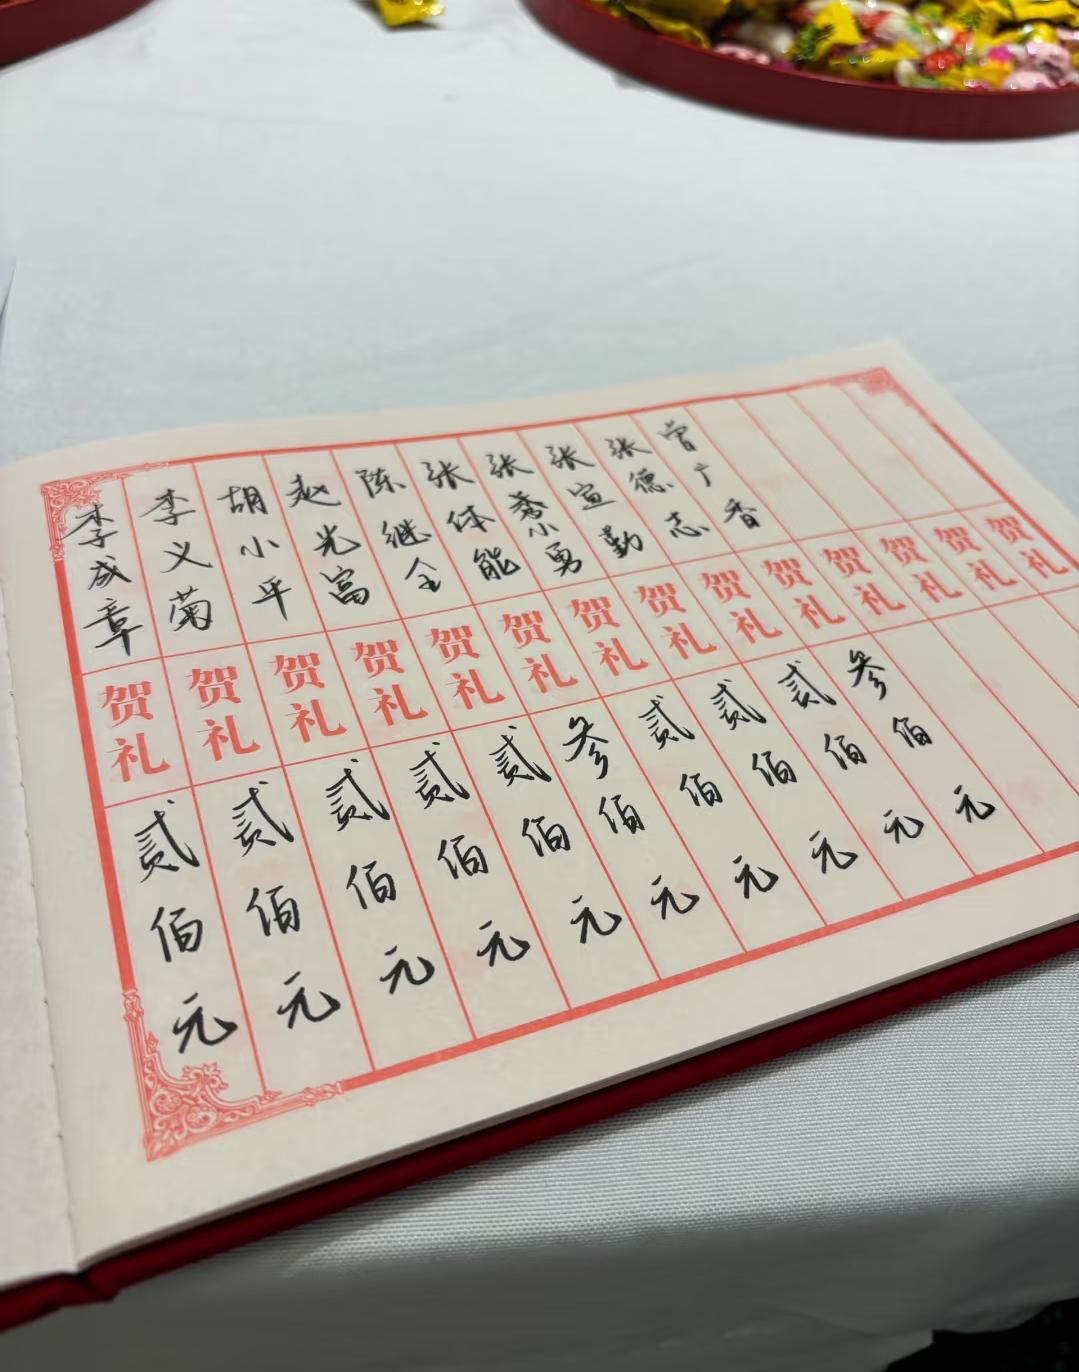 李成章 贺礼 贰佰元
李义菊 贺礼 贰佰元
胡小平 贺礼 贰佰元
赵光富 贺礼 贰佰元
陈继全 贺礼 贰佰元
张体能 贺礼 参佰元
张小勇 贺礼 贰佰元
张宣勤 贺礼 贰佰元
张德志 贺礼 贰佰元
曾广香 贺礼 参佰元
贺礼
贺礼
贺礼
贺礼